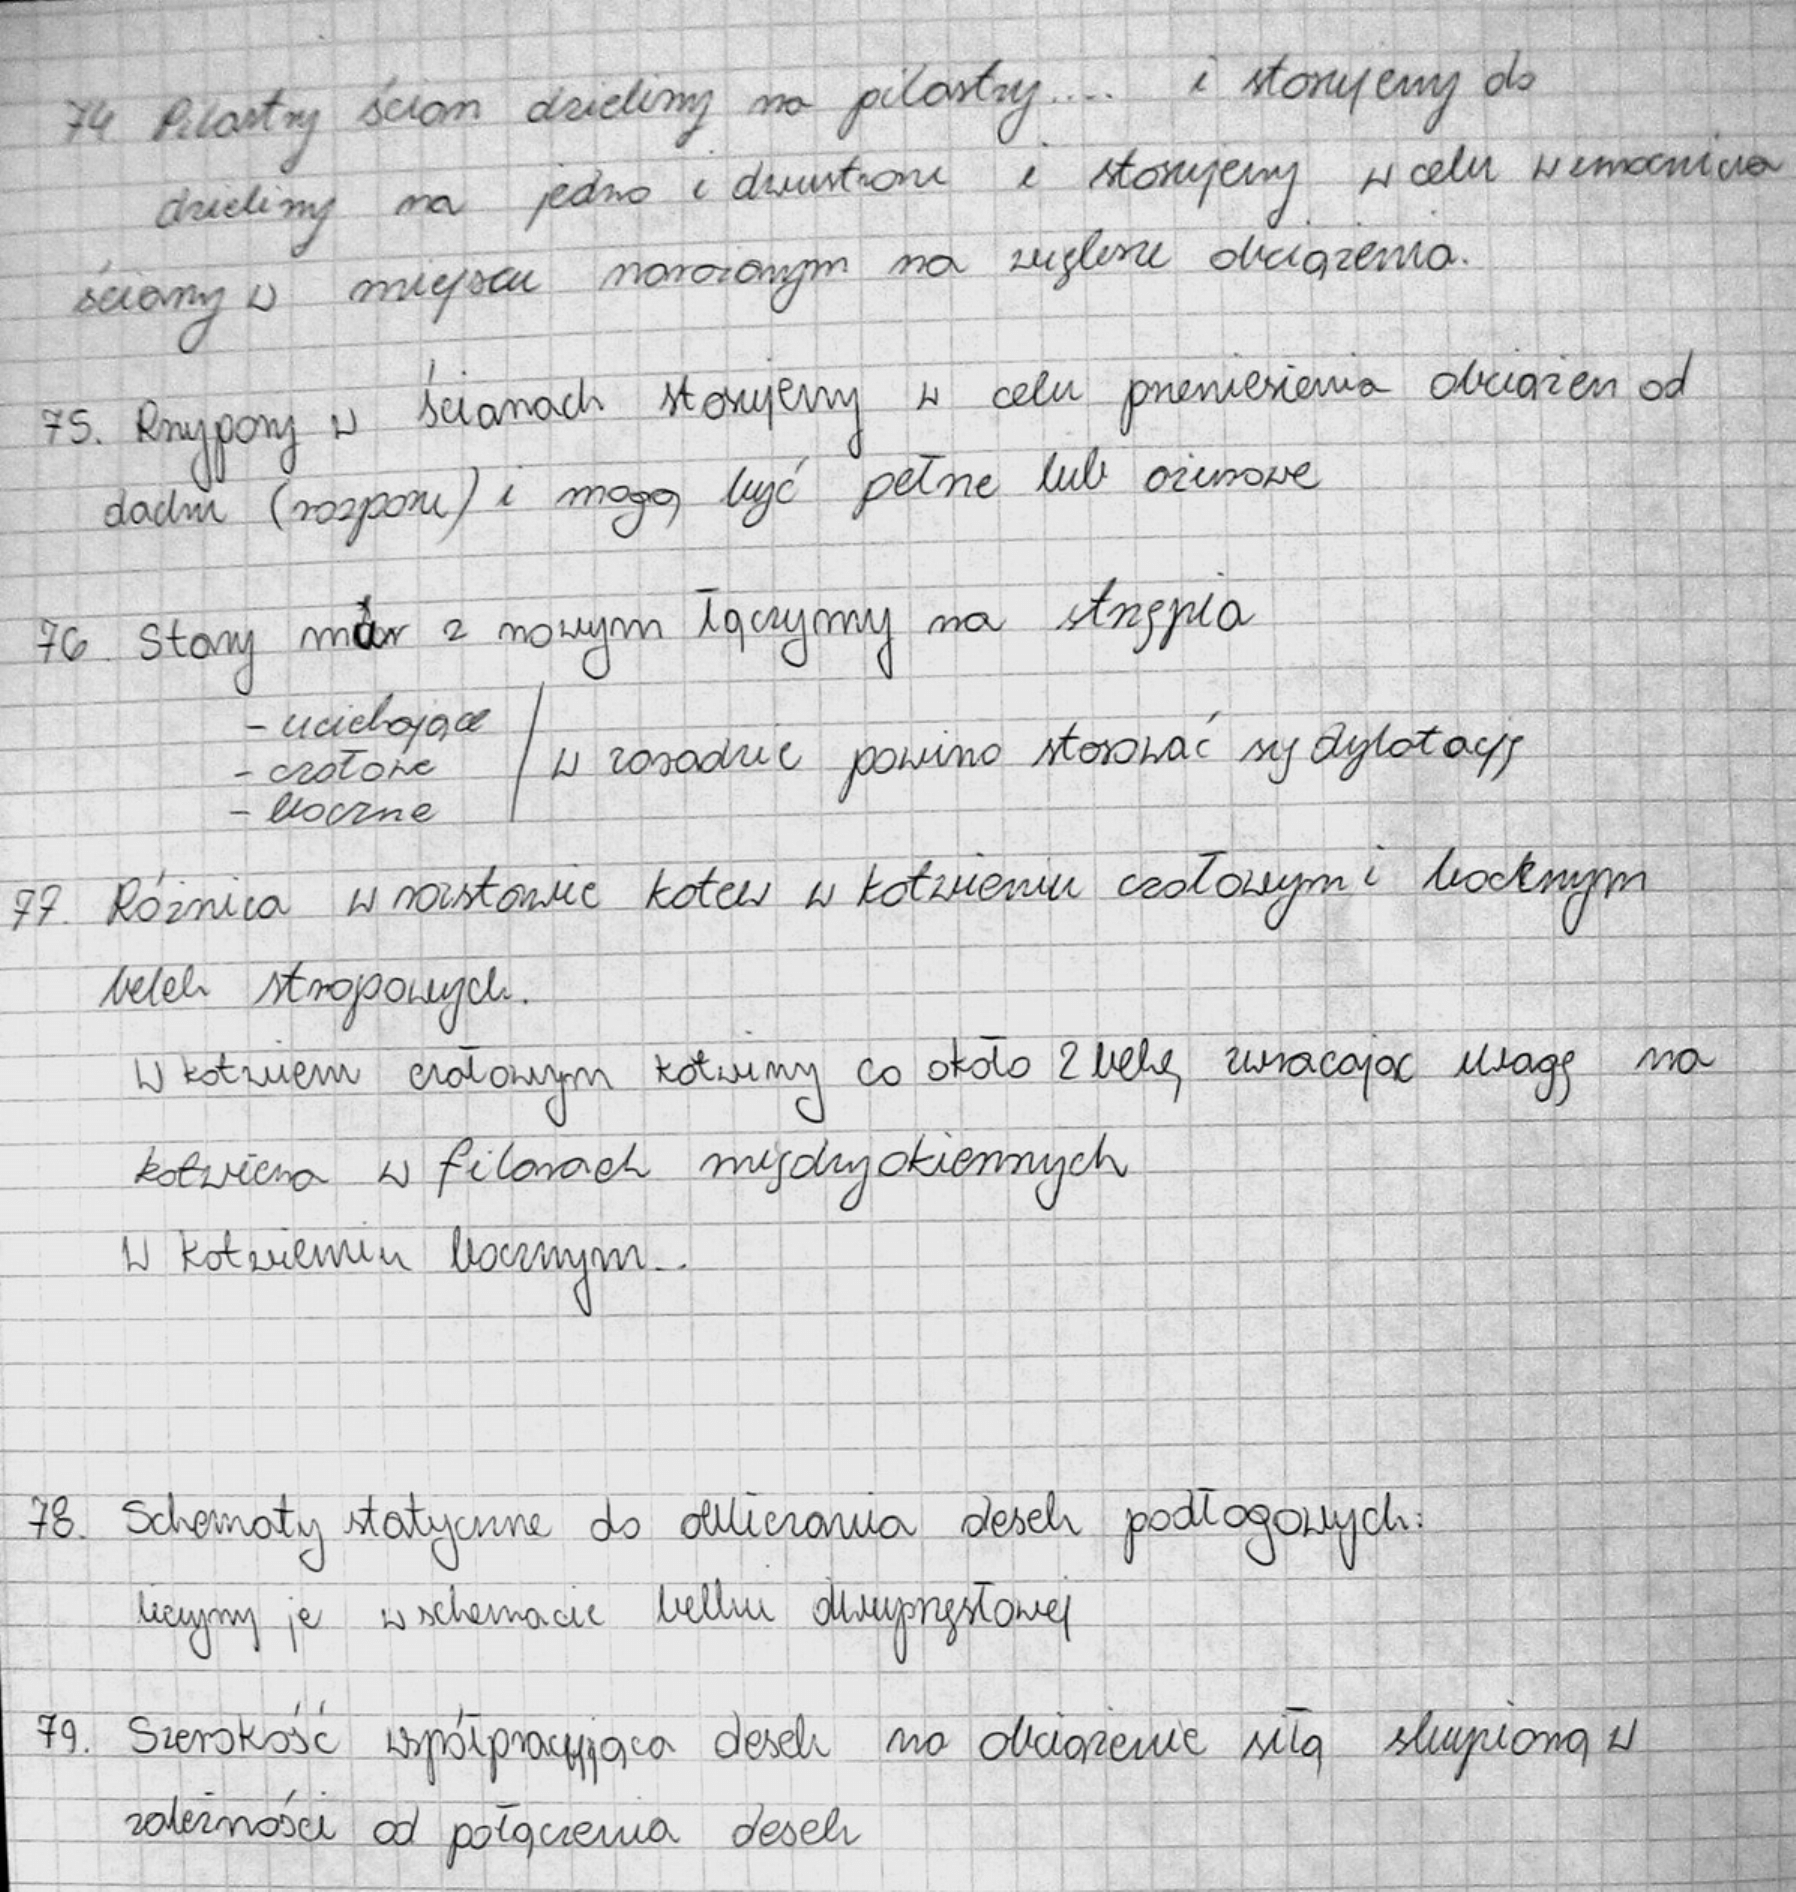 74 Pilastry ścian dzielimy na pilastry.... i stosujemy do
dzielimy na jedno i dwustrone i stosujemy w celu wzmocnienia
ściany w miejscu narożonym na większe obciążenia.
75. Przypory w ścianach stosujemy w celu przeniesienia obciążeń od
dachu (rozporu) i mogą być pełne lub ażurowe
76. Stary mur z nowym łączymy na strzępia
- uciekające
- czołowe
- boczne
w zasadzie powino stosować się dylatację
77. Różnica w rozstawie kotew w kotwieniu czołowym i bocznym
belek stropowych.
W kotwieniu czołowym kotwimy co około 2 belkę zwracając uwagę na
kotwienia w filarach międzyokiennych
W kotwieniu bocznym...
78. Schematy statyczne do obliczania desek podłogowych:
liczymy je w schemacie belki dwuprzęsłowej
79. Szerokość współpracująca desek na obciążenie siłą skupioną w
zależności od połączenia desek